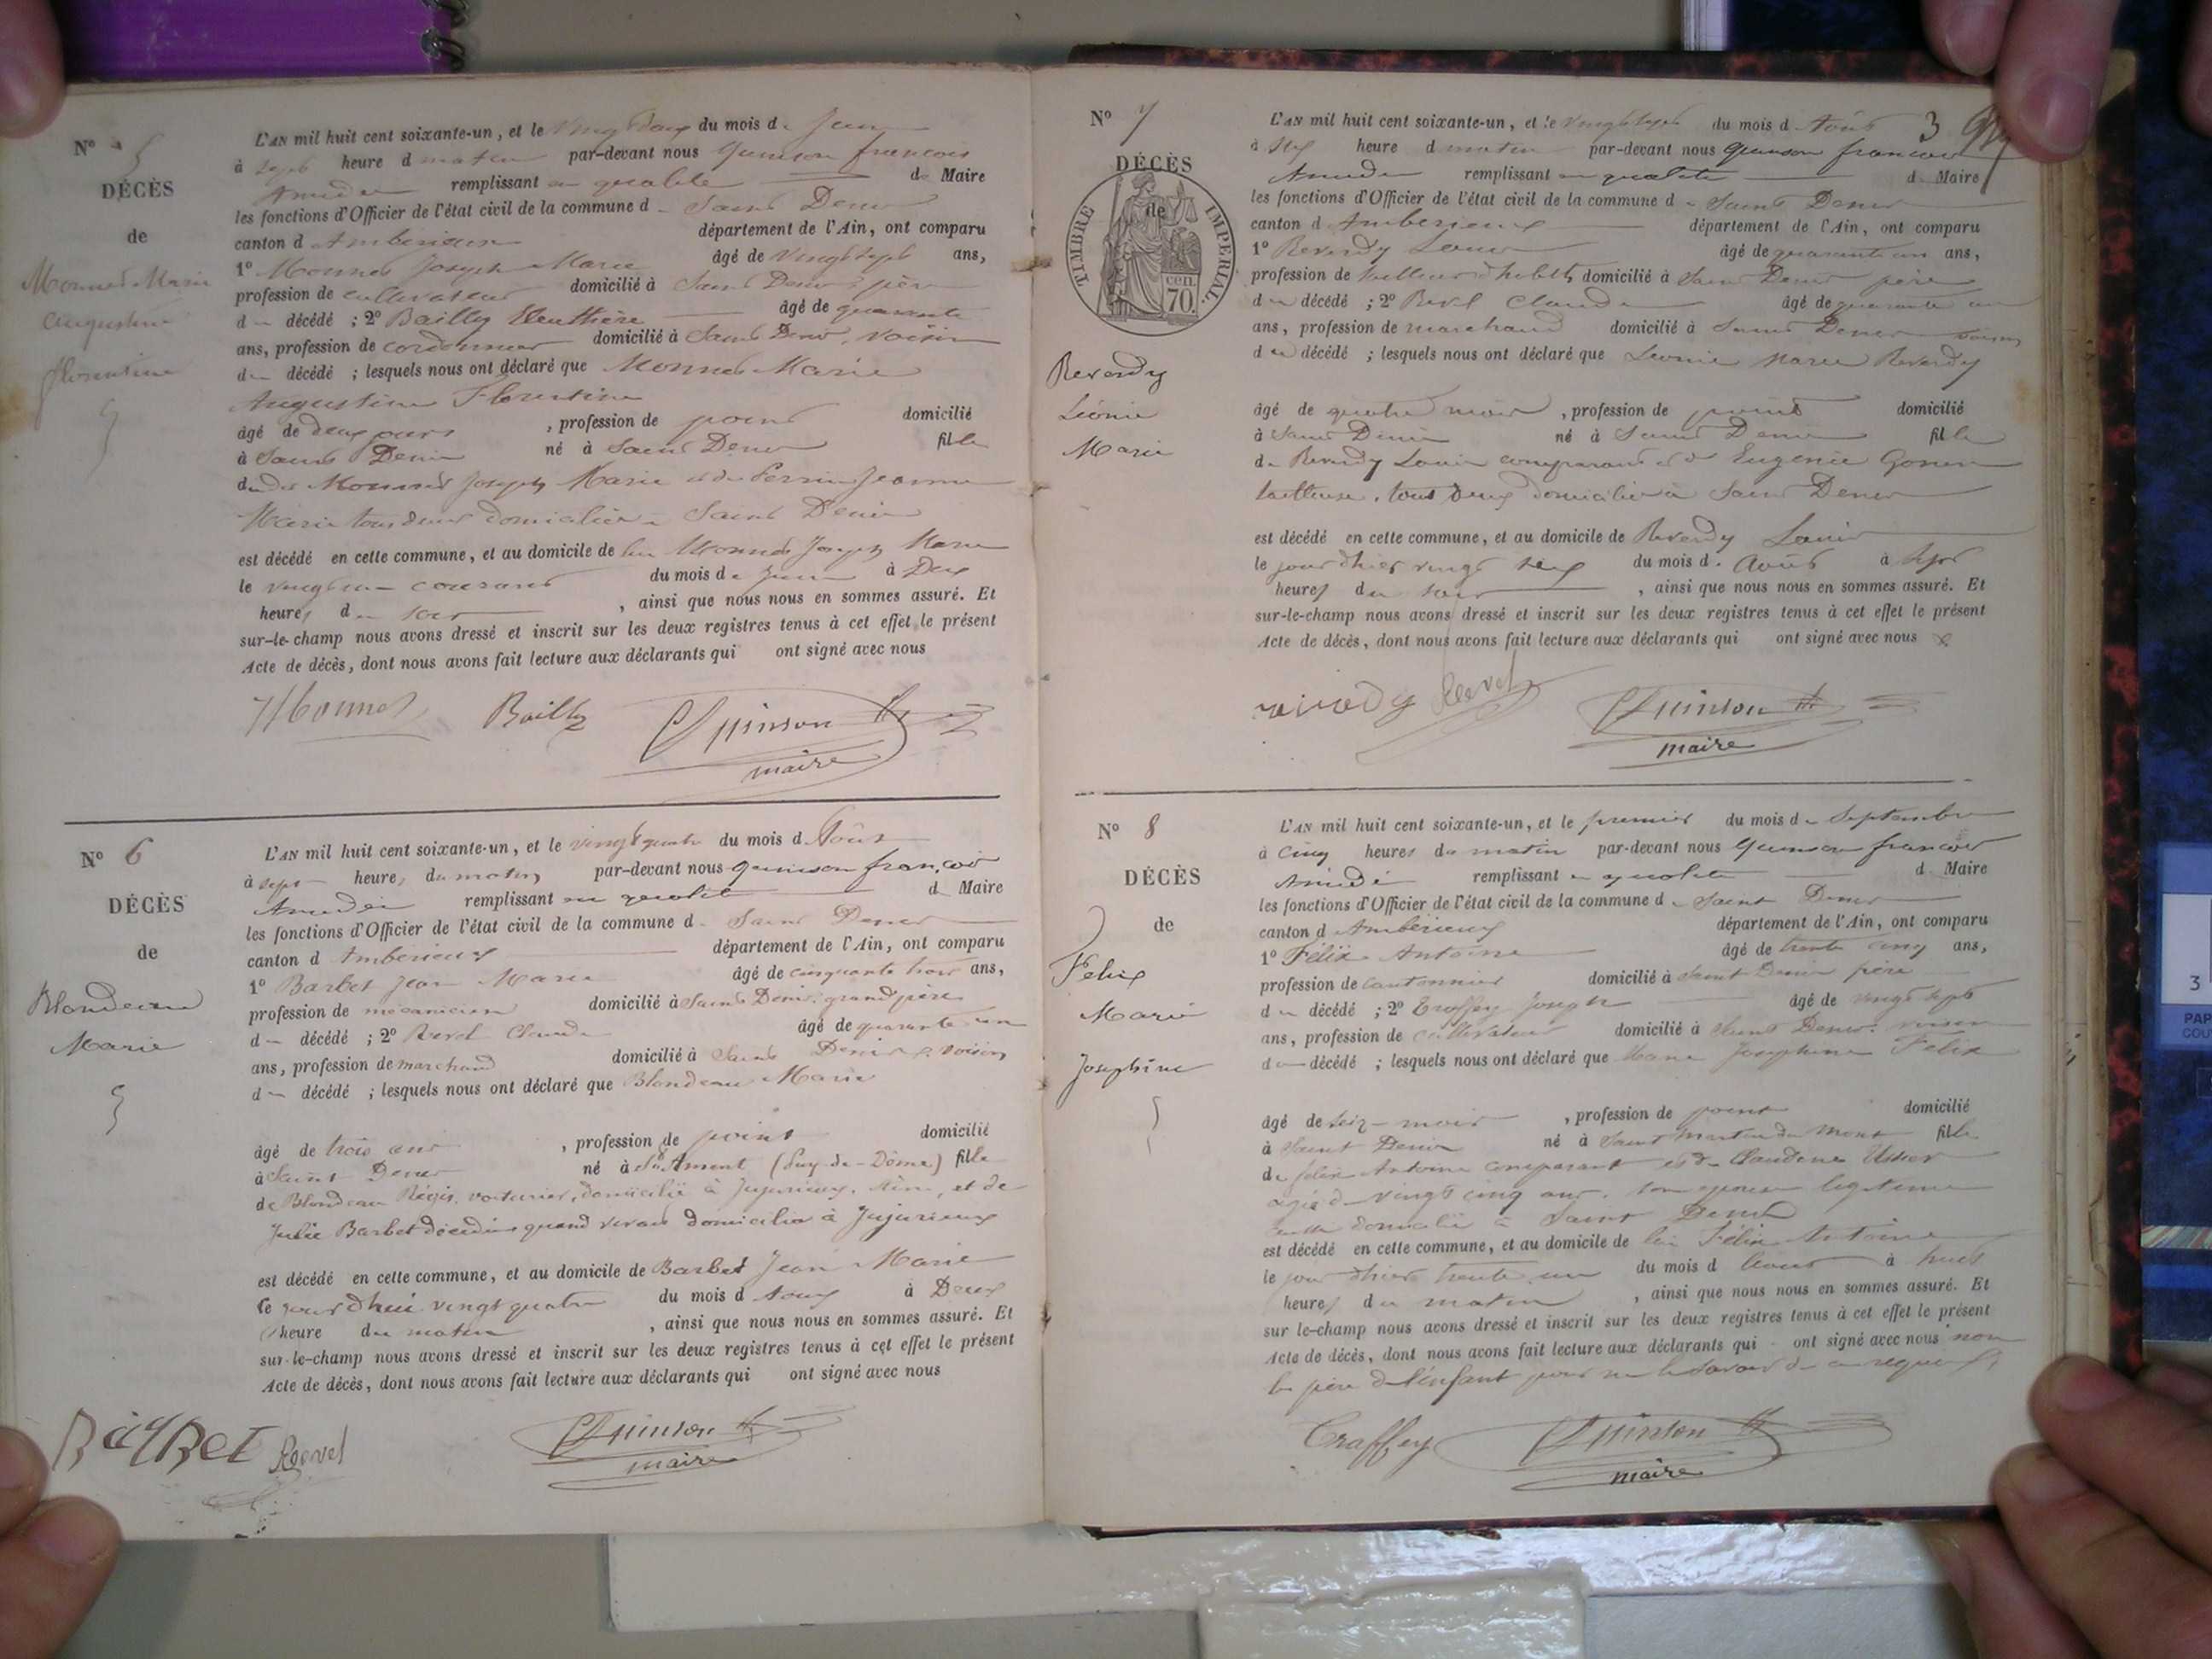 N° 5
DÉCÈS
de
Monnet Marie
augustine
florentine
L'AN mil huit cent soixante-un, et le vingt deux du mois de Juin
à sept heure du matin par-devant nous Quinson françois
Amédée remplissant en qualité de Maire
les fonctions d'Officier de l'état civil de la commune de Saint Denis
canton d'Ambérieux département de l'Ain, ont comparu
1° Monnet Joseph Marie âgé de vingt sept ans,
profession de cultivateur domicilié à Saint Denis, père
du décédé ; 2° Bailly Eleuthère âgé de quarante
ans, profession de cordonnier domicilié à Saint Denis, voisin
du décédé ; lesquels nous ont déclaré que Monnet Marie
Augustine Florentine
âgé de deux jours , profession de point domicilié
à Saint Denis né à Saint Denis fille
dudit Monnet Joseph Marie et de Perrin Jeanne
Marie tous deux domiciliés à Saint Denis
est décédé en cette commune, et au domicile de lui Monnet Joseph Marie
le vingt un courant du mois de Juin à Deux
heures du soir , ainsi que nous nous en sommes assuré. Et
sur-le-champ nous avons dressé et inscrit sur les deux registres tenus à cet effet le présent
Acte de décès, dont nous avons fait lecture aux déclarants qui ont signé avec nous
Monnet Bailly Quinson
maire
N° 6
DÉCÈS
de
Blondeau
Marie
L'AN mil huit cent soixante-un, et le vingt quatre du mois d Août
à sept heures du matin par-devant nous Quinson françois
Amédée remplissant en qualité d Maire
les fonctions d'Officier de l'état civil de la commune d Saint Denis
canton d Ambérieux département de l'Ain, ont comparu
1° Barbet Jean Marie âgé de cinquante trois ans,
profession de mécanicien domicilié à Saint Denis, grand père
d décédé ; 2° Revel Claude âgé de quarante un
ans, profession de marchand domicilié à Saint Denis, voisin
d décédé ; lesquels nous ont déclaré que Blondeau Marie
âgé de trois ans , profession de point domicilié
à Saint Denis né à (Puy-de-Dôme) fille
de Blondeau Régis, voiturier, domicilié à Jujurieux, Ain, et de
Julie Barbet décédée quand vivait domiciliée à Jujurieux
est décédé en cette commune, et au domicile de Barbet Jean Marie
le jourdhui vingt quatre du mois d Août à Deux
heure du matin , ainsi que nous nous en sommes assuré. Et
sur-le-champ nous avons dressé et inscrit sur les deux registres tenus à cet effet le présent
Acte de décès, dont nous avons fait lecture aux déclarants qui ont signé avec nous
BarBet Revel Quinson
maire
3
N° 7
DÉCÈS
de
TIMBRE IMPERIAL
70 cen.
Reverdy
Léonie
Marie
L'AN mil huit cent soixante-un, et le vingt sept du mois d Août
à sept heure d matin par-devant nous Quinson francois
Amédée remplissant en qualité d Maire
les fonctions d'Officier de l'état civil de la commune d Saint Denis
canton d Ambérieux département de l'Ain, ont comparu
1° Reverdy Louis âgé de quarante un ans,
profession de tailleur d'habits domicilié à Saint Denis père
du décédé ; 2° Revel Claude âgé de quarante un
ans, profession de marchand domicilié à Saint Denis voisin
du décédé ; lesquels nous ont déclaré que Léonie Marie Reverdy
âgé de quatre mois , profession de point domicilié
à Saint Denis né à Saint Denis fille
de Reverdy Louis comparant et d' Eugénie
tailleuse, tous deux domiciliés à Saint Denis
est décédé en cette commune, et au domicile de Reverdy Louis
le jour d'hier vingt six du mois d. Août à sept
heures du soir , ainsi que nous nous en sommes assuré. Et
sur-le-champ nous avons dressé et inscrit sur les deux registres tenus à cet effet le présent
Acte de décès, dont nous avons fait lecture aux déclarants qui ont signé avec nous
Revel Quinson
maire
N° 8
DÉCÈS
de
Felix
Marie
Josephine
L'AN mil huit cent soixante-un, et le premier du mois de Septembre
à cinq heures du matin par-devant nous Quinson francois
Amédé remplissant en qualité d Maire
les fonctions d'Officier de l'état civil de la commune d Saint Denis
canton d Ambérieux département de l'Ain, ont comparu
1° Félix Antoine âgé de trente cinq ans,
profession de cantonnier domicilié à Saint Denis père
du décédé ; 2° Troffey Joseph âgé de vingt sept
ans, profession de cultivateur domicilié à Saint Denis, voisin
du décédé ; lesquels nous ont déclaré que Marie Josephine Felix
âgé de seize mois , profession de point domicilié
à Saint Denis né à Saint Martin du Mont fille
de félix Antoine comparant et de Claudine
agée de vingt cinq ans, son épouse légitime
domicilié à Saint Denis
est décédé en cette commune, et au domicile de lui Félix Antoine
le jour d'hier trente un du mois d Août à huit
heures du matin , ainsi que nous nous en sommes assuré. Et
sur le-champ nous avons dressé et inscrit sur les deux registres tenus à cet effet le présent
Acte de décès, dont nous avons fait lecture aux déclarants qui ont signé avec nous non
le père de l'enfant pour ne le savoir de ce requis
Traffey Quinson
maire